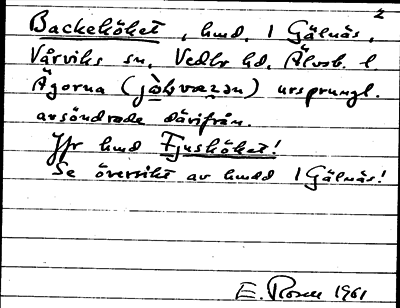 2
Backehöket, hmd. 1 Gälnäs,
Vårviks sn, Vedbo hd. Älvsb. l
Ägorna (                ) ursprungl.
avsöndrade därifrån.
Jfr hmd Fjushöket!
Se översikt av hmdd 1 Gälnäs!
E. Rosell 1961